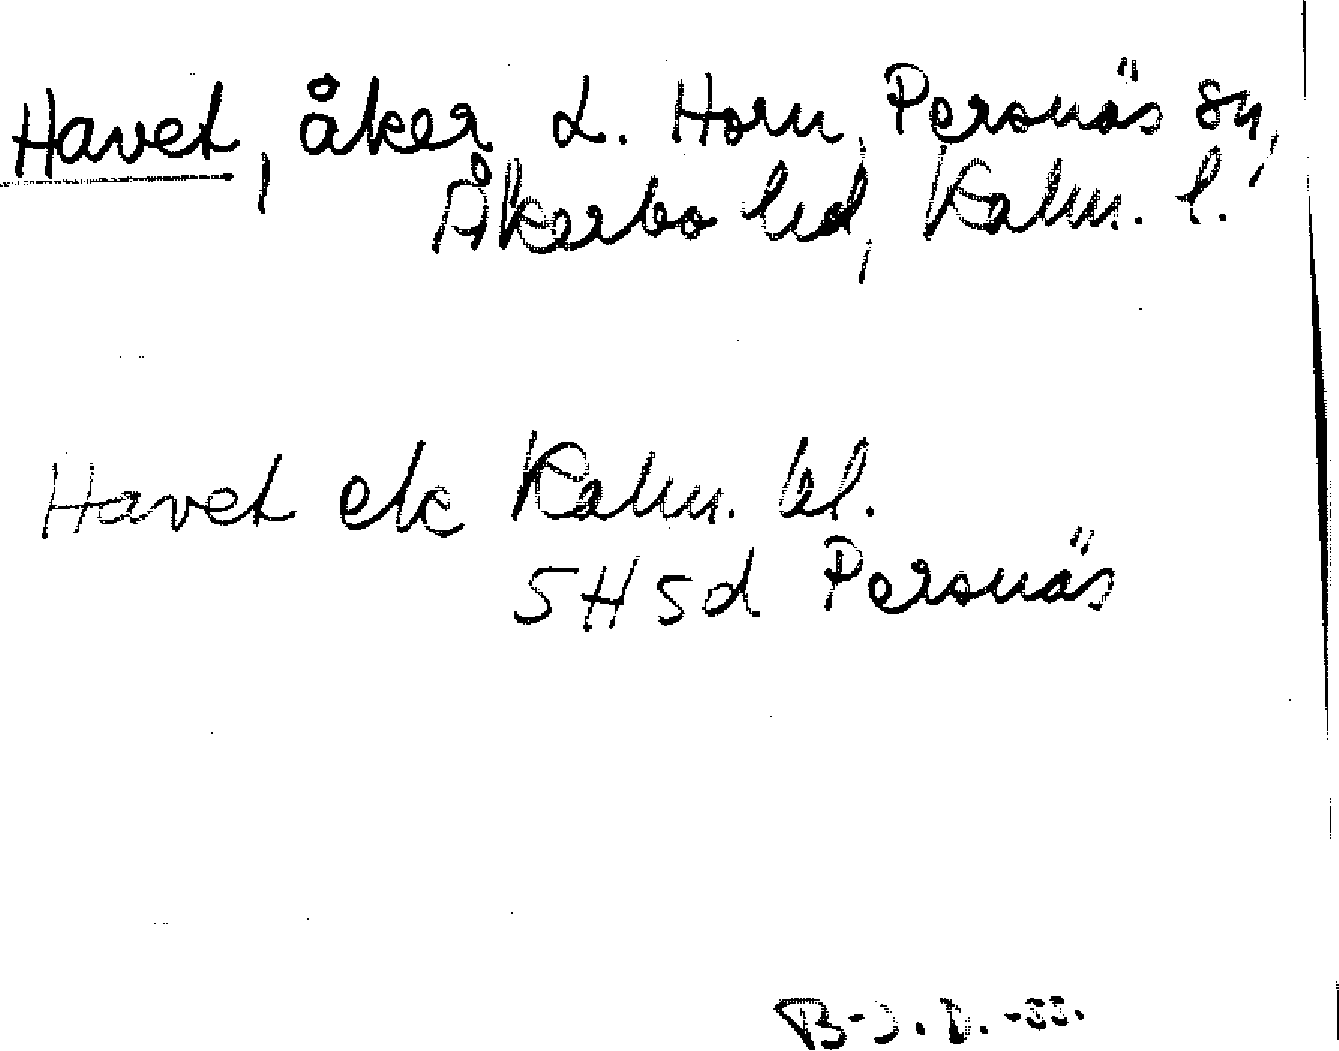 Havet, åker L. Horn, Persnäs sn,
Åkerbo hd, Kalm. l.
Havet ek Kalm. bl.
SHSd Persnäs
B-J. D. -55.